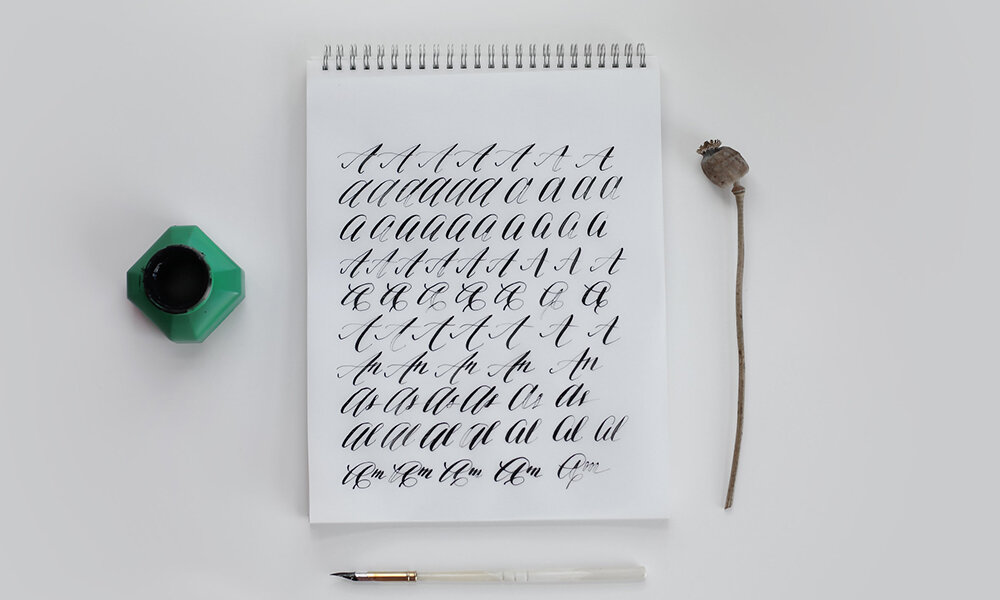 A A A A A A A
a a a a a a a a a a
a a a a a a a a a a
A A A A A A A A A
A A A A A A A
A A A A A A A
An An An An An
as as as as as as
al al al al al al al
am am am am am